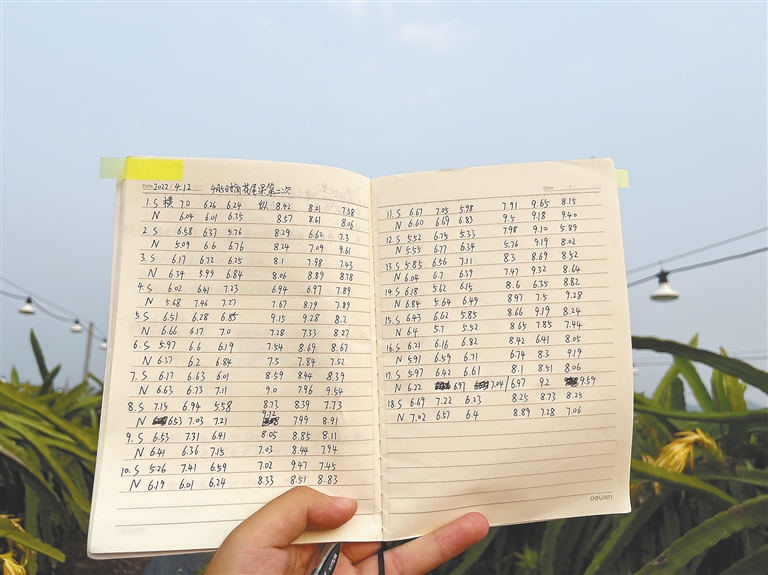 Date 2022.4.12
1.S 横 7.0 6.26 6.24 纵 8.42 8.21 7.58
N 6.04 6.01 6.35 8.57 8.61 8.06
2.S 6.58 6.37 5.76 8.29 6.62 7.3
N 5.09 6.6 6.76 8.24 7.09 9.61
3.S 6.17 6.72 6.25 8.1 7.98 7.43
N 6.34 5.99 6.84 8.06 8.89 8.78
4.S 6.02 6.41 7.23 6.94 6.97 7.89
N 5.68 7.46 7.27 7.67 8.79 7.89
5.S 6.51 6.28 6.85 9.15 9.28 8.2
N 6.66 6.17 7.0 7.28 7.33 8.27
6.S 5.97 6.6 6.19 7.54 8.69 8.67
N 6.37 6.2 6.84 7.5 7.84 7.52
7.S 6.17 6.63 6.01 8.59 8.44 8.39
N 6.63 6.73 7.11 9.0 7.96 9.54
8.S 7.15 6.94 5.58 8.73 8.39 7.73
N 6.53 7.03 7.21 9.12 7.99 8.91
9.S 6.53 7.31 6.41 8.05 8.85 8.11
N 6.41 6.36 7.15 7.03 8.44 7.94
10.S 5.26 7.41 6.59 7.02 9.47 7.45
N 6.19 6.01 6.24 8.33 8.51 8.83
Date
11.S 6.67 7.05 5.98 7.91 9.65 8.15
N 6.60 6.69 6.83 9.5 9.18 9.40
12.S 5.52 6.75 5.33 7.98 9.10 5.89
N 5.55 6.77 6.34 5.76 9.19 8.02
13.S 5.85 6.56 7.11 8.3 8.69 8.52
N 6.04 6.7 6.39 7.47 9.32 8.64
14.S 6.18 5.62 6.15 8.6 6.35 8.82
N 6.84 5.64 6.49 8.97 7.5 9.28
15.S 6.43 6.62 5.85 8.66 9.19 8.24
N 6.4 5.7 5.52 8.65 7.85 7.44
16.S 6.21 6.16 6.82 8.42 6.41 8.05
N 5.91 6.59 6.71 6.74 8.3 9.19
17.S 5.97 6.42 6.61 8.1 8.51 8.06
N 6.22 6.91 7.04 6.97 9.2 9.59
18.S 6.69 7.22 6.23 8.25 8.73 8.25
N 7.02 6.57 6.4 8.89 7.28 7.06